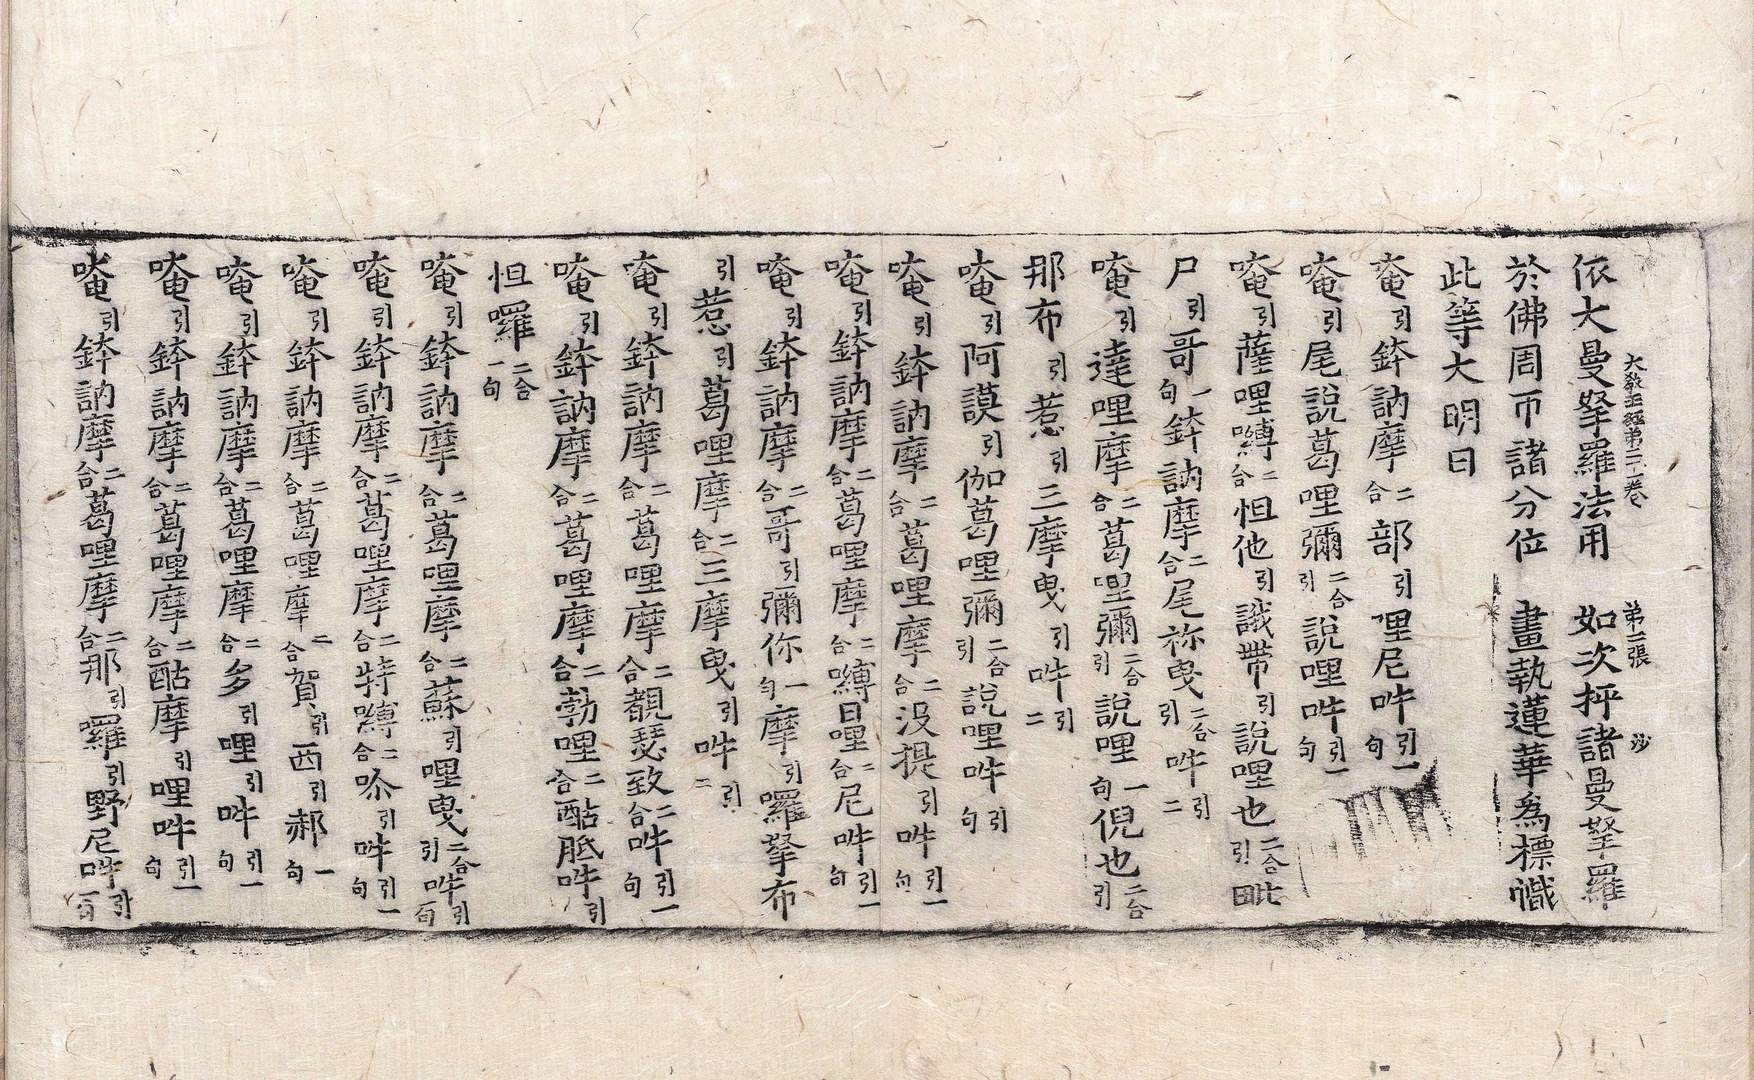 大教王經第二十二卷 第三張 沙
依大曼拏羅法用 如次抨諸曼拏羅
於佛周帀諸分位 畫執蓮華為標幟
此等大明曰
唵引鉢訥摩二合部引哩尼吽引一句
唵引尾說葛哩彌二合引說哩吽引一句
唵引薩哩嚩二合怛他引誐帶引說哩也二合引毗
尸引哥一句鉢訥摩二合尾祢曳二合引吽引二
唵引達哩摩二合葛哩彌二合引說哩一句倪也二合引
那布引惹引三摩曳引吽引二
唵引阿謨引伽葛哩彌二合引說哩吽引句
唵引鉢訥摩二合葛哩摩二合沒提引吽引一句
唵引鉢訥摩二合葛哩摩二合嚩日哩二合尼吽引一句
唵引鉢訥摩二合哥引彌你一句摩引囉拏布
引惹引葛哩摩二合三摩曳引吽引二
唵引鉢訥摩二合葛哩摩二合覩瑟致二合吽引一句
唵引鉢訥摩二合葛哩摩二合勃哩二合酤胝吽引
怛囉二合一句
唵引鉢訥摩二合葛哩摩二合蘇引哩曳二合引吽引一句
唵引鉢訥摩二合葛哩摩二合特嚩二合𠆙引吽引一句
唵引鉢訥摩二合葛哩摩二合賀引西引郝一句
唵引鉢訥摩二合葛哩摩二合多引哩引吽引一句
唵引鉢訥摩二合葛哩摩二合酤摩引哩吽引一句
唵引鉢訥摩二合葛哩摩二合那引囉引野尼吽引一句